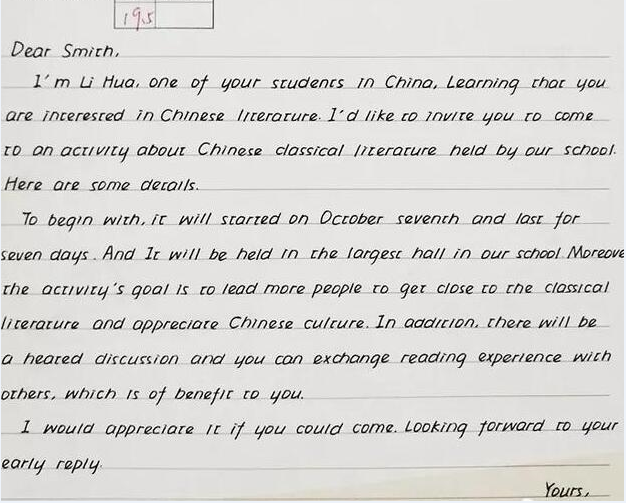 19.5
Dear Smith,
I'm Li Hua, one of your students in China, Learning that you
are interested in Chinese literature. I'd like to invite you to come
to an activity about Chinese classical literature held by our school.
Here are some details.
To begin with, it will started on October seventh and last for
seven days. And It will be held in the largest hall in our school Moreove
the activity's goal is to lead more people to get close to the classical
literature and appreciate Chinese culture. In addition, there will be
a heated discussion and you can exchange reading experience with
others, which is of benefit to you.
I would appreciate it if you could come. Looking forward to your
early reply.
Yours,